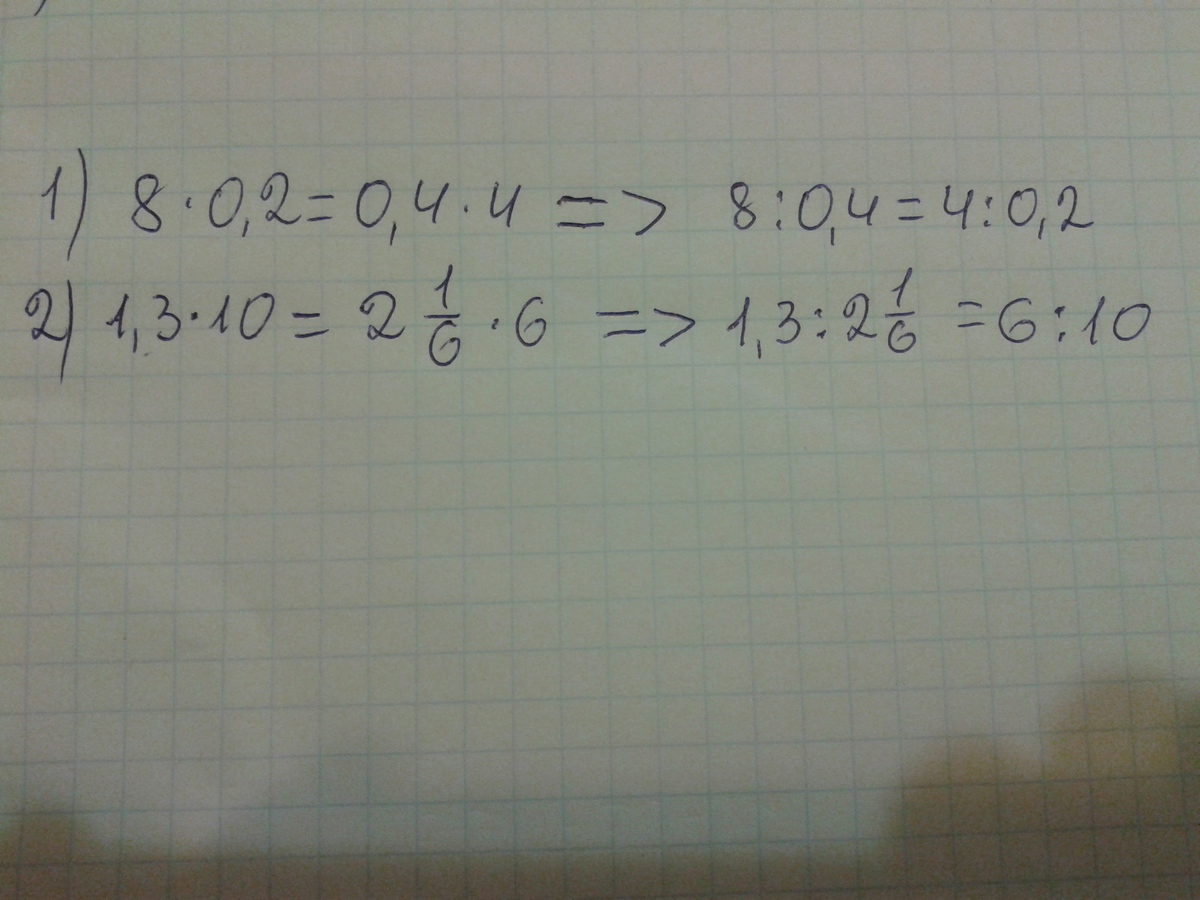 1) 8·0,2=0,4·4 => 8:0,4=4:0,2
2) 1,3·10= 2 1/6 ·6 => 1,3:2 1/6 =6:10